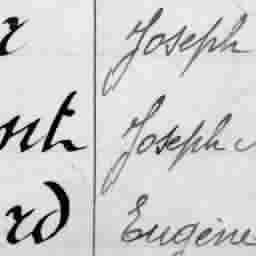 r Joseph
nt Joseph
rd Eugène